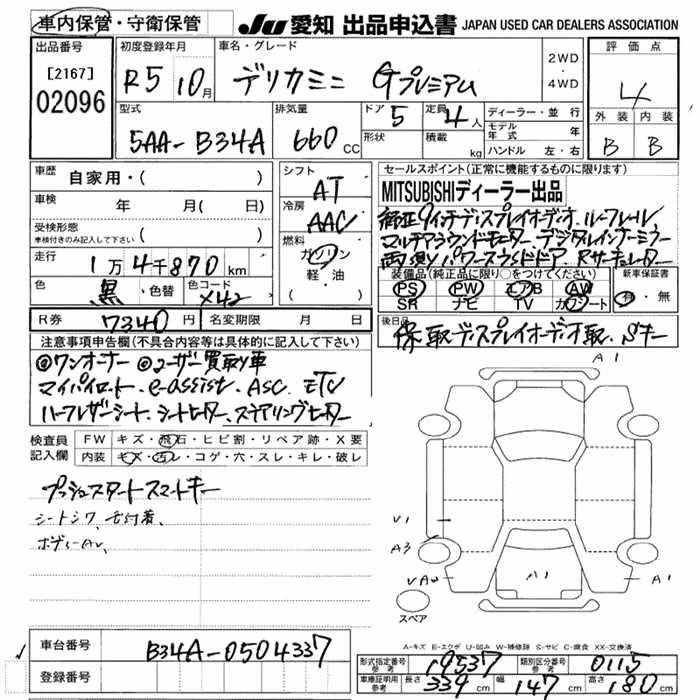 車内保管・守衛保管 JU 愛知 出品申込書 JAPAN USED CAR DEALERS ASSOCIATION
出品番号 初度登録年月 車名・グレード 2WD・4WD 評価点
[2167] 02096 R5 10月 デリカミニ Gプレミアム 4
型式 排気量 ドア 5 定員 4人 ディーラー・並行 外装 内装
5AA-B34A 660cc 形状 積載 kg モデル年式 年 B B
ハンドル 左・右
車歴 自家用・( ) シフト AT セールスポイント(正常に機能するものに限ります)
車検 年 月(日) 冷房 AAC MITSUBISHIディーラー出品
受検形態 車検付きのみ記入して下さい ( ) 純正9インチディスプレイオーディオ.ルーフレール
燃料 ガソリン・軽油 ( ) マルチアラウンドモニター、デジタルインナーミラー
走行 1万4千870km 両側パワースライドドア.Rサーキュレーター
色 黒 色替 色コード X42 装備品(純正品に限り○をつけてください) 新車保証書
PS PW エアB AW 有・無
SR ナビ TV カワシート
R券 7340円 名変期限 月 日 後日品 保 取 ディスプレイオーディオ取、Sキー
注意事項申告欄(不具合内容等は具体的に記入して下さい)
◎ワンオーナー ◎ユーザー買取り車
マイパイロット. e-assist. ASC. ETC
ハーフレザーシート、シートヒーター、ステアリングヒーター
検査員記入欄 FW キズ・飛石・ヒビ割・リペア跡・X要
内装 キズ・汚レ・コゲ・穴・スレ・キレ・破レ
プッシュスタートスマートキー
シートシワ、毛付着、
ボディーAU、
A1
V1
A3
A1
A1
スペア
A-キズ E-エクボ U-凹み W-補修跡 S-サビ C-腐食 XX-交換済
車台番号 B34A-0504337
登録番号
形式指定番号 参考 19537 類別区分番号 参考 0115
車庫証明用 参考 長さ 339cm 幅 147cm 高さ 180cm